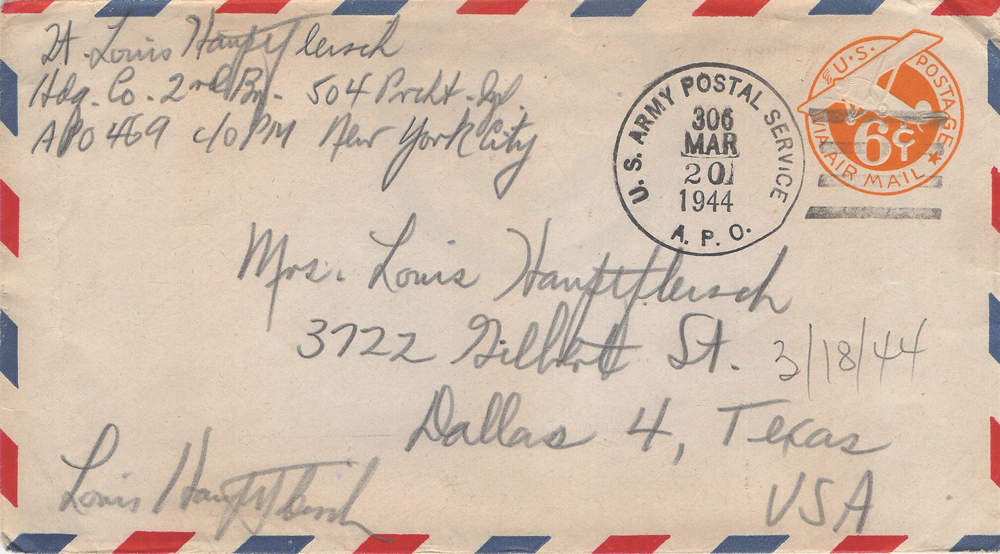 Lt. Louis Hauptfleisch
Hdq. Co. 2nd Bn. 504 Prcht. Inf.
APO 469 c/o PM New York City
U. S. ARMY POSTAL SERVICE
306
MAR
20
1944
A. P. O.
U.S. POSTAGE
6¢
VIA AIR MAIL
Mrs. Louis Hauptfleisch
3722 Gilbert St.
3/18/44
Dallas 4, Texas
USA
Louis Hauptfleisch